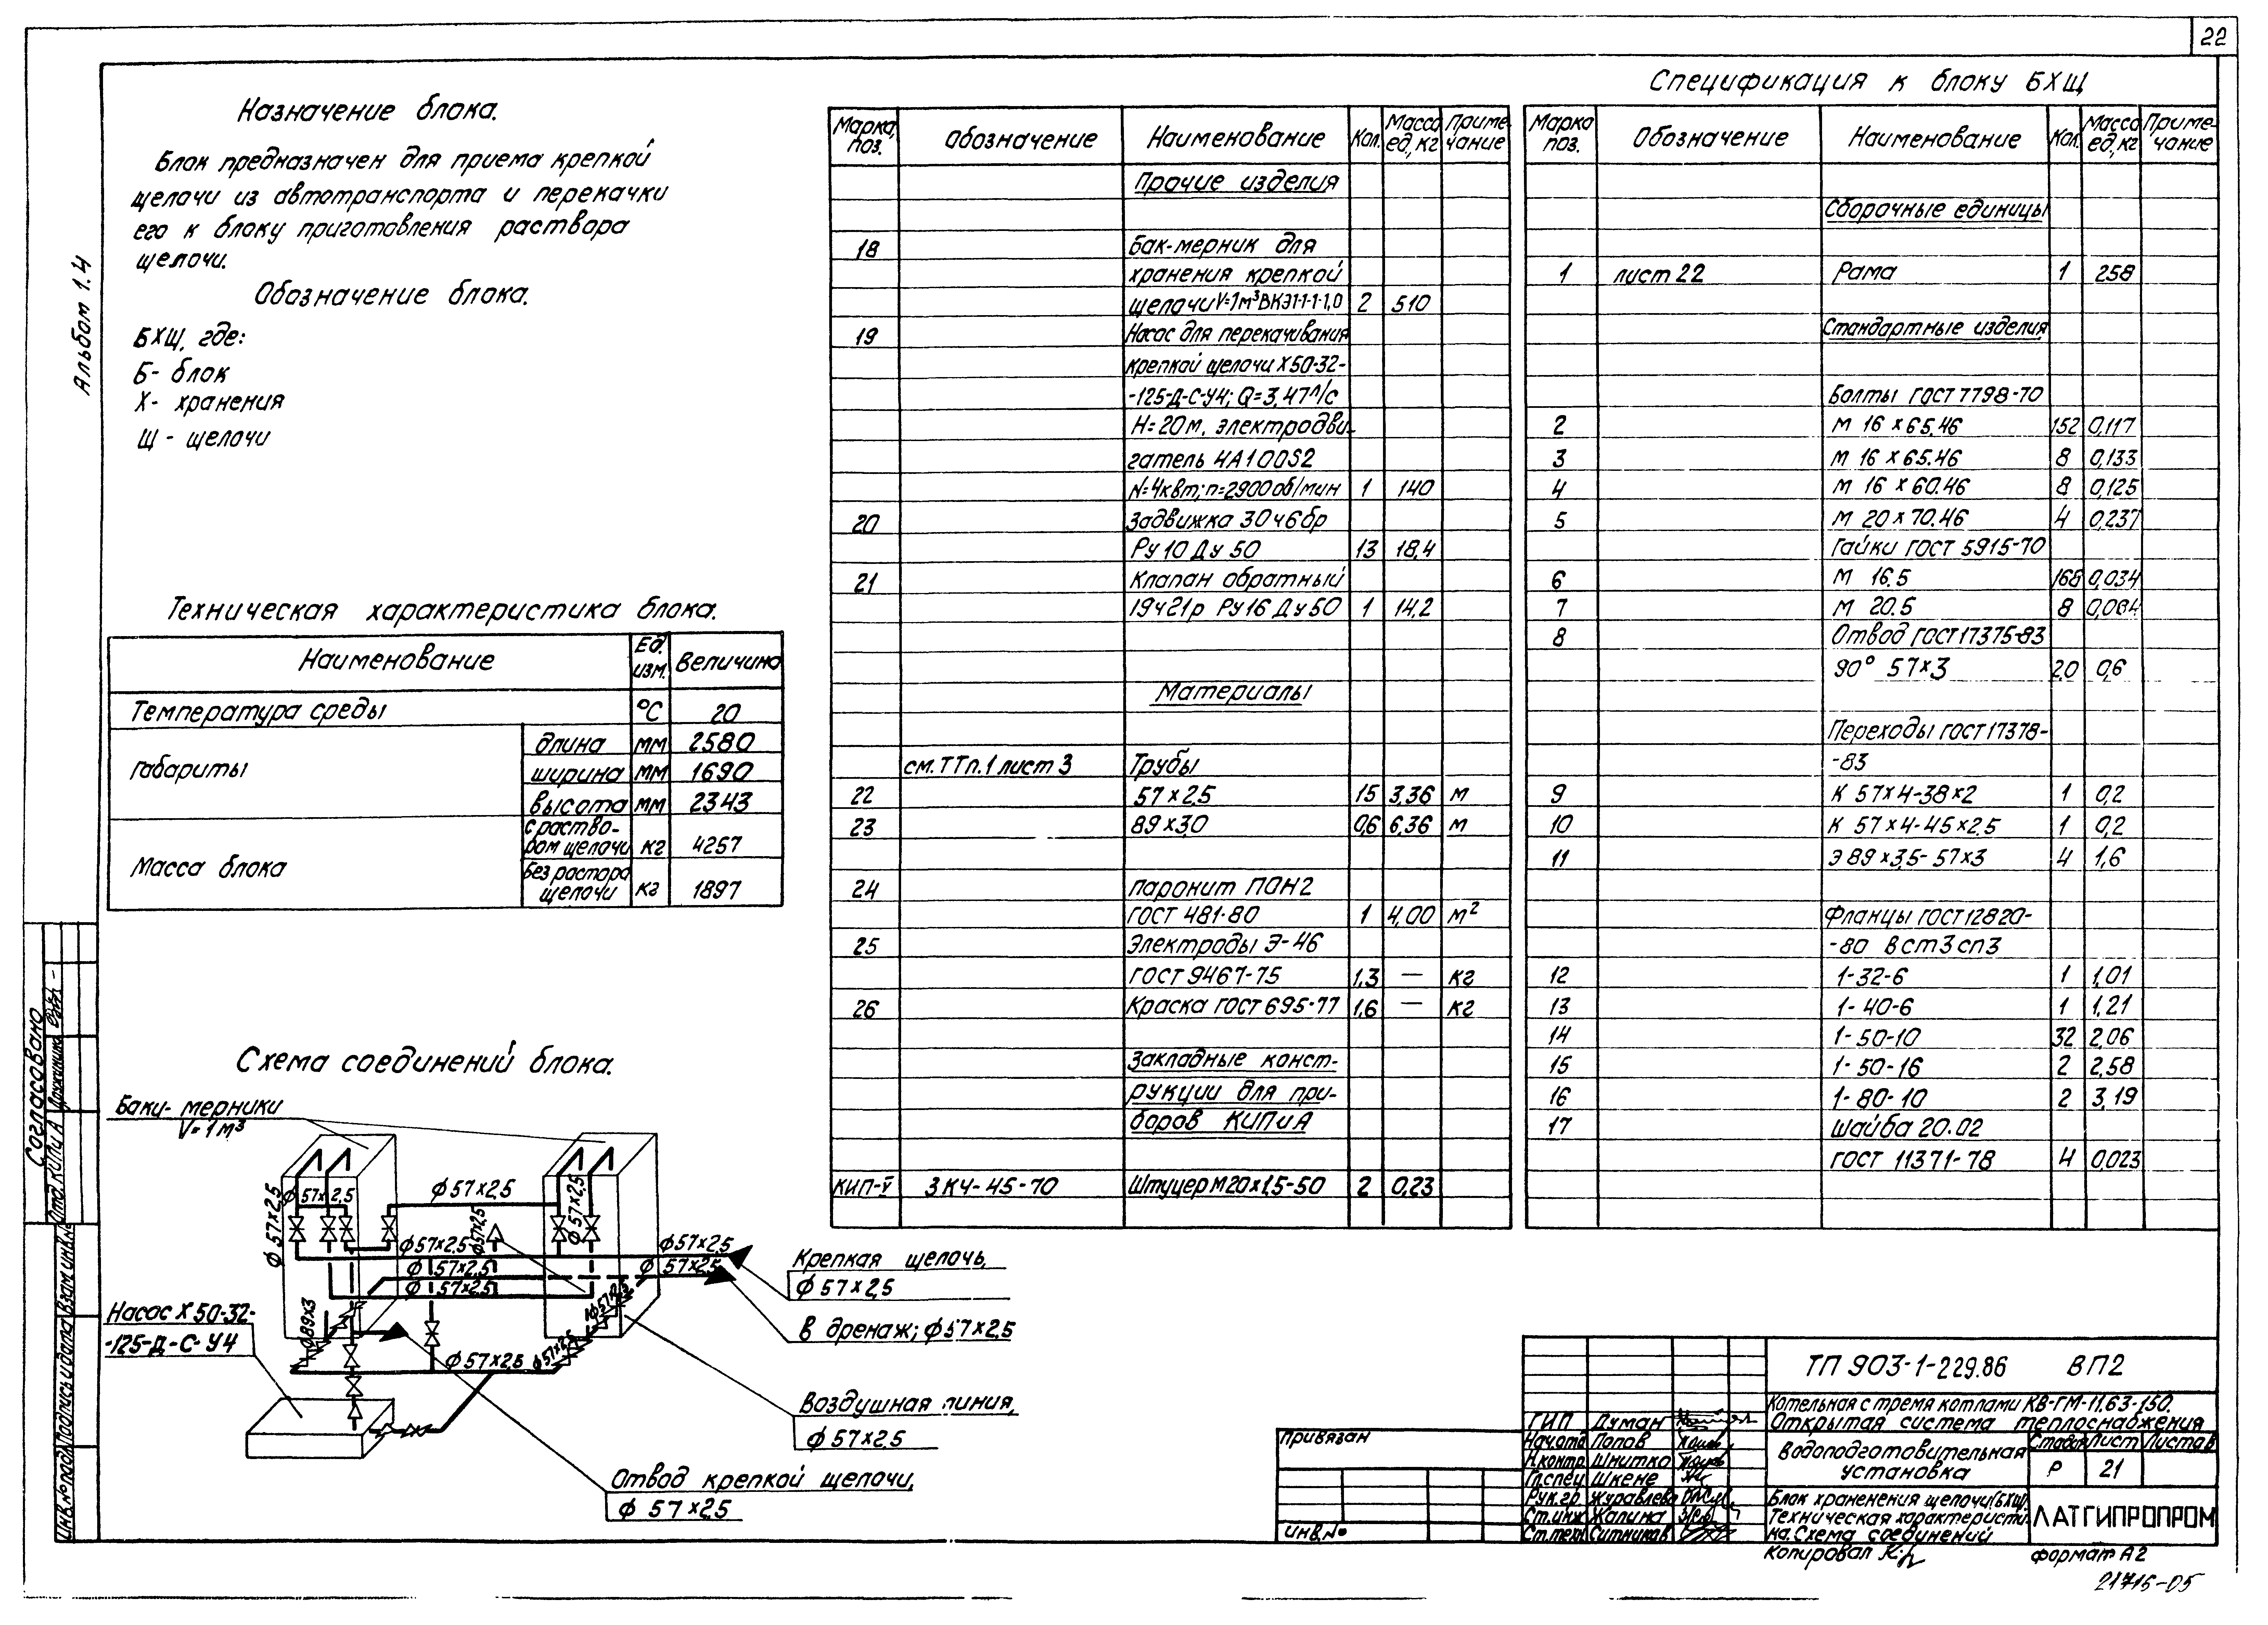 22
Альбом 1.4
Назначение блока.
Блок предназначен для приема крепкой
щелочи из автотранспорта и перекачки
его к блоку приготовления раствора
щелочи.
Обозначение блока.
БХЩ, где:
Б- блок
Х- хранения
Щ - щелочи
Техническая характеристика блока.
Наименование Ед. изм. Величина
Температура среды °С 20
Габариты длина мм 2580
ширина мм 1690
высота мм 2343
Масса блока с раство-
ром щелочи кг 4257
без растора
щелочи кг 1897
Схема соединений блока.
Баки- мерники
V= 1м³
ф 57×2,5
ф 57×2,5
ф 57×2,5
ф57×2,5
ф57×2,5
ф57×2,5
ф 57×2,5
ф 57×2,5
ф57×2,5
ф 57×2,5
ф57×2,5
ф89×3
ф 57×2,5
ф57×2,5
Насос Х 50-32-
-125-Д-С-У4
Крепкая щелочь,
ф 57×2,5
в дренаж; ф57×2,5
Воздушная линия,
ф 57×2,5
Отвод крепкой щелочи,
ф 57×2,5
Марка, поз. Обозначение Наименование Кол. Масса ед, кг Приме- чание
Прочие изделия
18 Бак-мерник для
хранения крепкой
щелочи V=1м³ ВКЭ1-1-1-1,0 2 510
19 Насос для перекачивания
крепкой щелочи Х50-32-
-125-Д-С-У4; Q=3,47л/с
H=20м, электродви-
гатель 4А100S2
N=4квт; n=2900об/мин 1 140
20 Задвижка 30ч6бр
Ру 10 Ду 50 13 18,4
21 Клапан обратный
19ч21р Ру16 Ду50 1 14,2
Материалы
см.ТТп.1 лист 3 Трубы
22 57×2,5 15 3,36 м
23 89×3,0 0,6 6,36 м
24 паронит ПОН2
ГОСТ 481-80 1 4,00 м²
25 Электроды Э-46
ГОСТ 9467-75 1,3 — кг
26 Краска ГОСТ 695-77 1,6 — кг
Закладные конст-
рукции для при-
боров КИПиА
КИП-V ЗКЧ-45-70 Штуцер М20×1,5-50 2 0,23
Спецификация к блоку БХЩ
Марка поз. Обозначение Наименование Кол. Масса ед, кг Приме- чание
Сборочные единицы
1 лист 22 Рама 1 258
Стандартные изделия
Болты ГОСТ 7798-70
2 М 16 × 65.46 152 0,117
3 М 16 × 65.46 8 0,133
4 М 16 × 60.46 8 0,125
5 М 20 × 70.46 4 0,237
Гайки ГОСТ 5915-70
6 М 16.5 168 0,034
7 М 20.5 8 0,064
8 Отвод ГОСТ 17375-83
90° 57×3 20 0,6
Переходы ГОСТ 17378-
-83
9 К 57×4-38×2 1 0,2
10 К 57×4-45×2,5 1 0,2
11 Э 89×3,5-57×3 4 1,6
Фланцы ГОСТ 12820-
-80 В ст3 сп3
12 1-32-6 1 1,01
13 1-40-6 1 1,21
14 1-50-10 32 2,06
15 1-50-16 2 2,58
16 1-80-10 2 3,19
17 шайба 20.02
ГОСТ 11371-78 4 0,023
Согласовано
Отд. КИПиА
Инв.№подл. Подпись и дата Взам инв.№
Привязан
Инв.№
ТП 903-1-229.86 ВП2
Котельная с тремя котлами КВ-ГМ-11,63-150.
Открытая система теплоснабжения
ГИП Думан
Нач.отд Попов
Н.контр Шнитко
Гл.спец Шкене
Рук.гр. Журавлева
Ст.инж Жалина
Ст.техн Ситников
Водоподготовительная
установка
Стадия Лист Листов
Р 21
Блок храненения щелочи (БХЩ).
Техническая характеристи-
ка. Схема соединений
ЛАТГИПРОПРОМ
Копировал
формат А2
21715-05